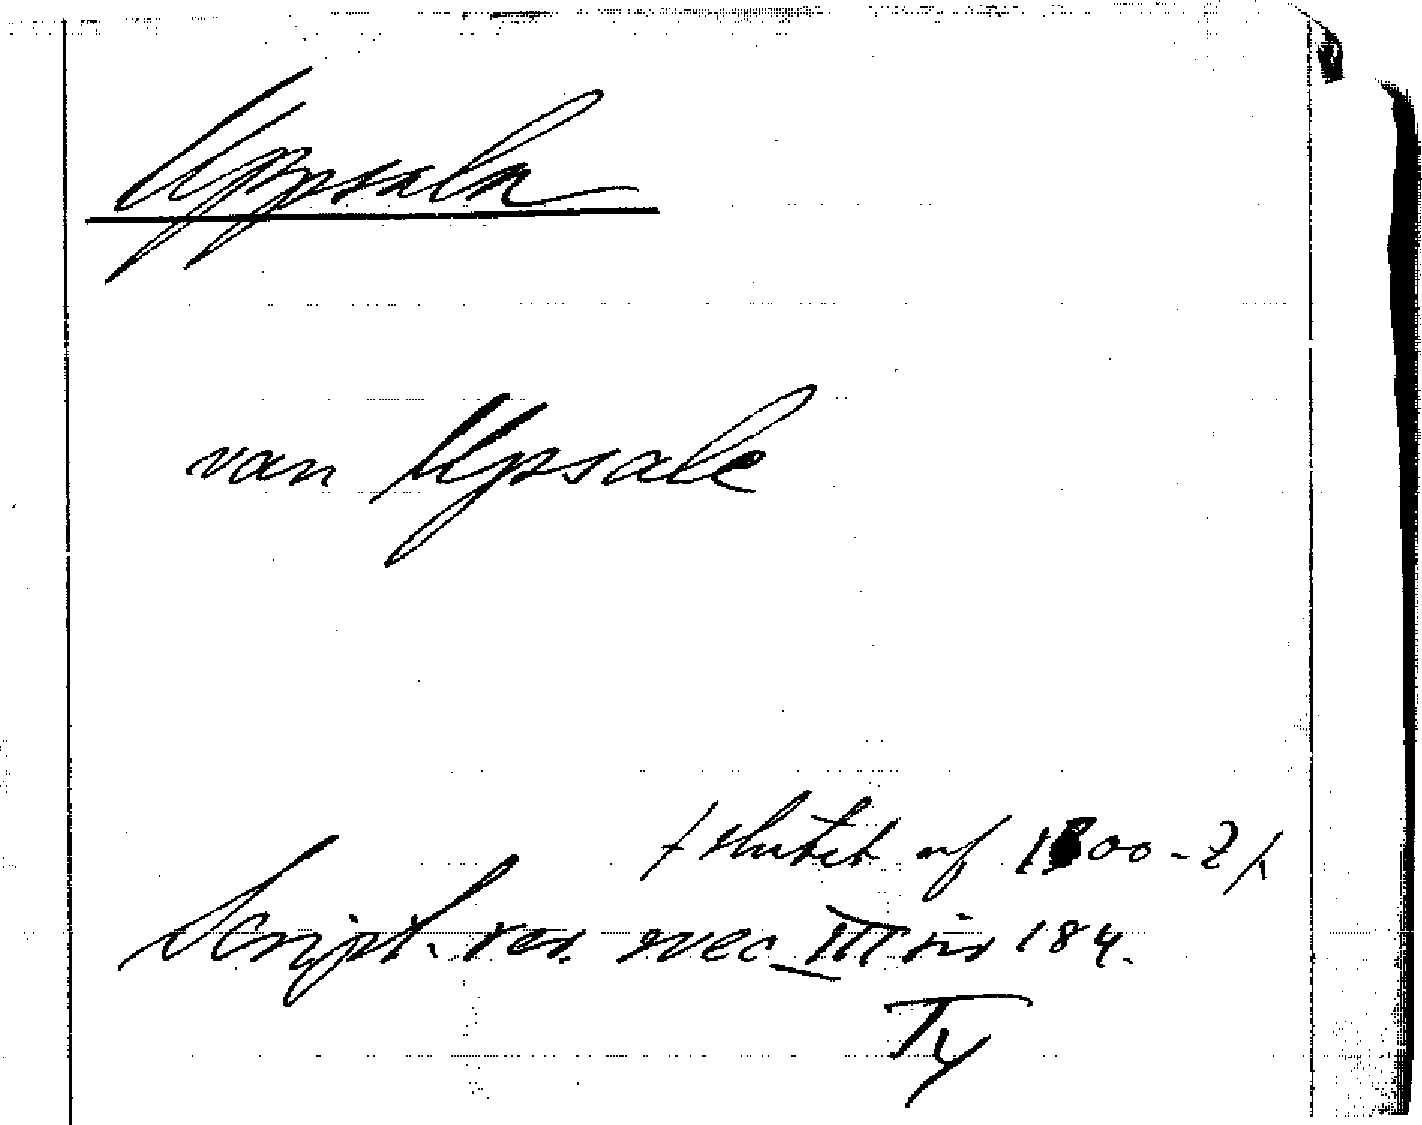 Uppsala
van Upsale
( slutet af 1300-t )
Script. rer. svec. III sid 184.
Ty